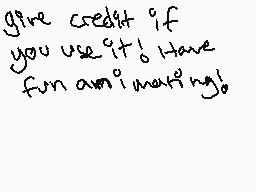 give credit if
you use it! Have
fun animating!